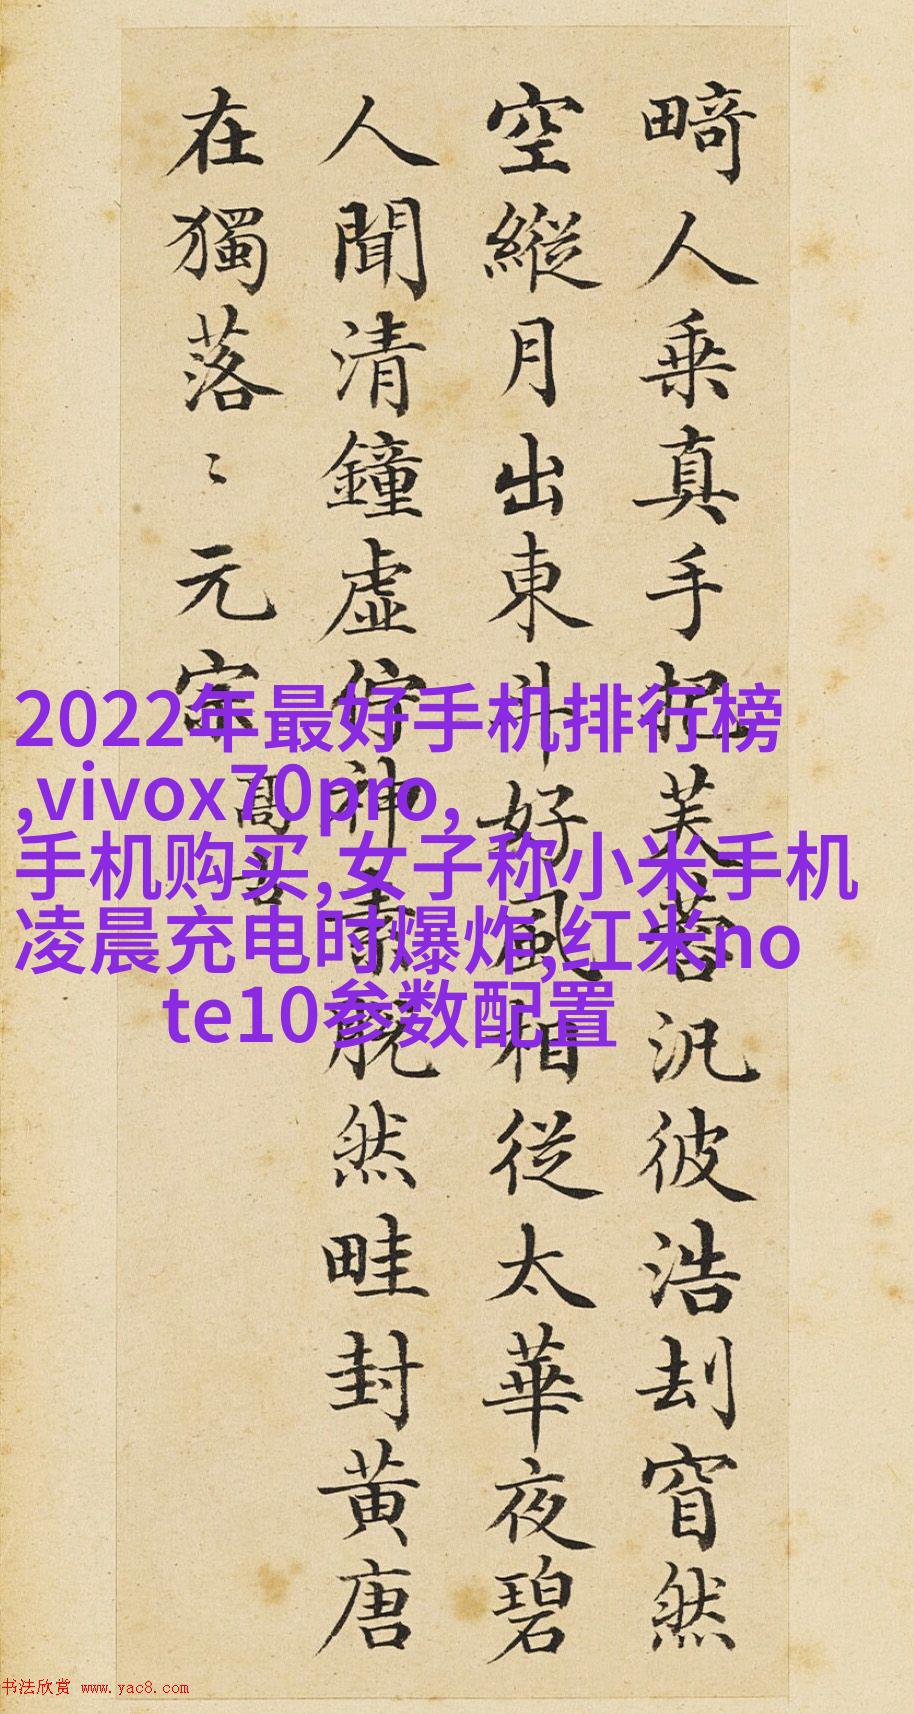 畸人乗真手把芙蓉汎彼浩刦窅然
空縱月出東斗好風相從太華夜碧
人聞清鐘虛佇神素脫然畦封黃唐
在獨落〻元宗
高古
2022年最好手机排行榜
,vivox70pro,
手机购买,女子称小米手机
凌晨充电时爆炸,红米no
te10参数配置
书法欣赏 www.yac8.com